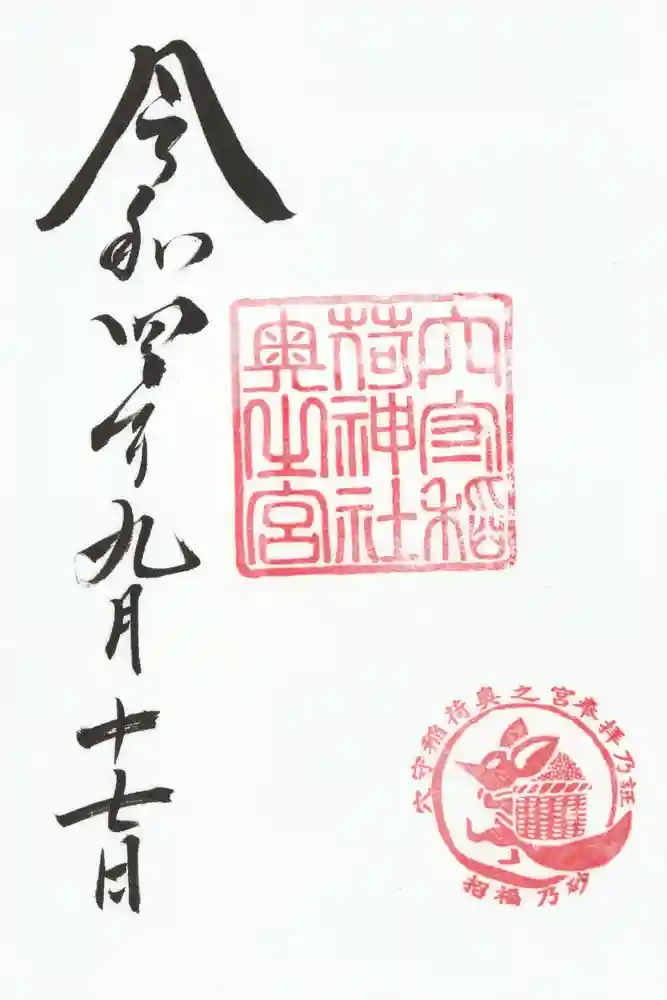 穴守稲
荷神社
奥之宮
穴守稲荷奥之宮奉拝乃証
招福乃砂
令和四年九月十七日